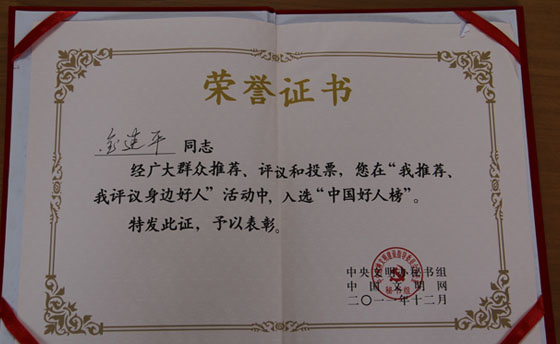 荣誉证书
金建平 同志
经广大群众推荐、评议和投票，您在“我推荐、
我评议身边好人”活动中，入选“中国好人榜”。
特发此证，予以表彰。
中央文明办秘书组
中国文明网
二〇一一年十二月
秘书组